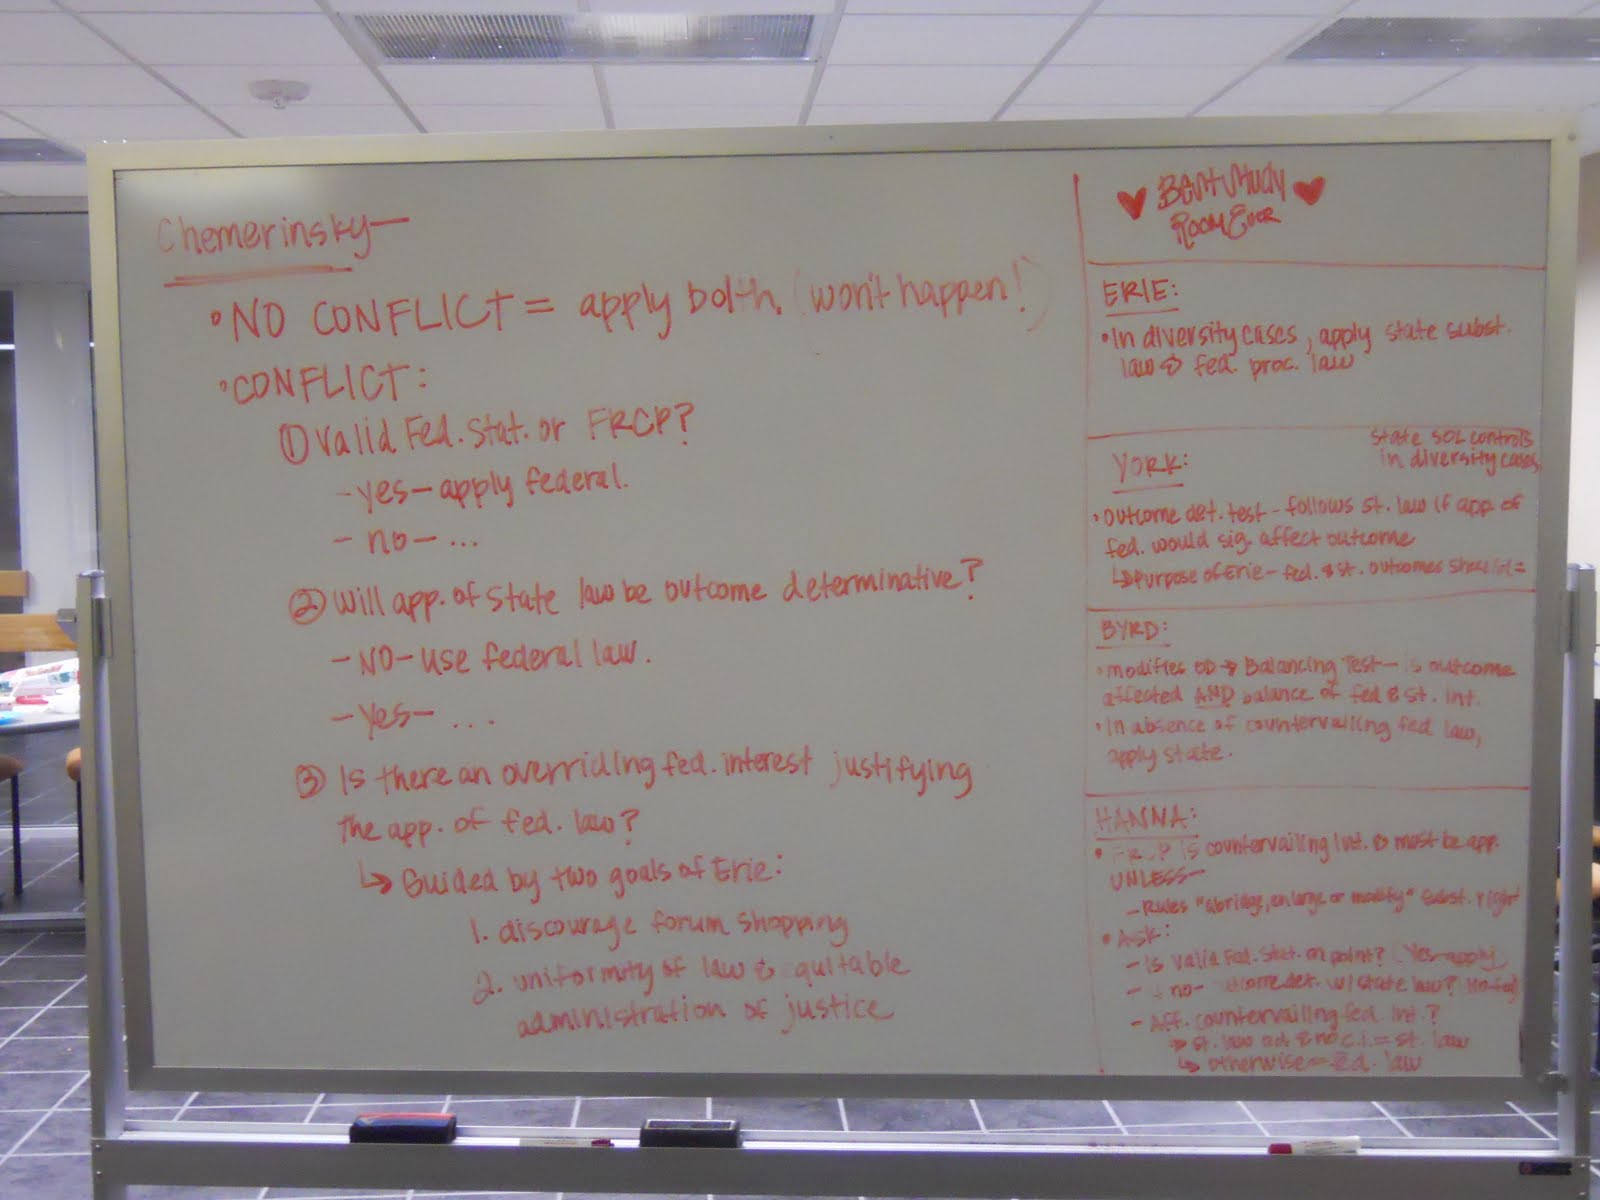 Chemerinsky—
• NO CONFLICT = apply bolth. (won't happen!)
• CONFLICT:
① Valid Fed. Stat. or FRCP?
- yes - apply federal.
- no - ...
② Will app. of State law be outcome determinative?
- NO - use federal law.
- Yes - ...
③ Is there an overriding fed. interest justifying
the app. of fed. law?
↳ Guided by two goals of Erie:
1. discourage forum shopping
2. uniformity of law & equitable
administration of justice
♥ Best Study ♥
Room Ever
ERIE:
• In diversity cases, apply state subst.
law & fed. proc. law
State SOL controls
in diversity cases
YORK:
• Outcome det. test - follows st. law if app. of
fed. would sig. affect outcome
↳ purpose of Erie - fed. & st. outcomes should =
BYRD:
• modifies OD → Balancing Test - is outcome
affected AND balance of fed & st. int.
• In absence of countervailing fed law,
apply state.
HANNA:
• FRCP is countervailing int. & must be app.
UNLESS—
- Rules "abridge, enlarge or modify" subst. right
• Ask:
- Is valid Fed. Stat. on point? (Yes-apply)
- no - det. w/ state law?
- Aff. countervailing fed. int.?
→ st. law o.d. & no c.i. = st. law
↳ otherwise = fed. law